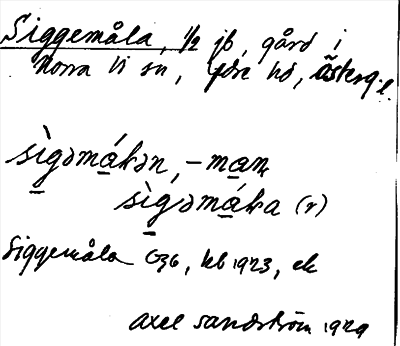 Siggemåla, 1/2 jb, gård i
Norra Vi sn, Ydre hd, Österg.l.
sìgǝmákǝn, -man
sìgǝmáka (r)
Siggemåla G36, kb 1923, ek
Axel Sandström 1929